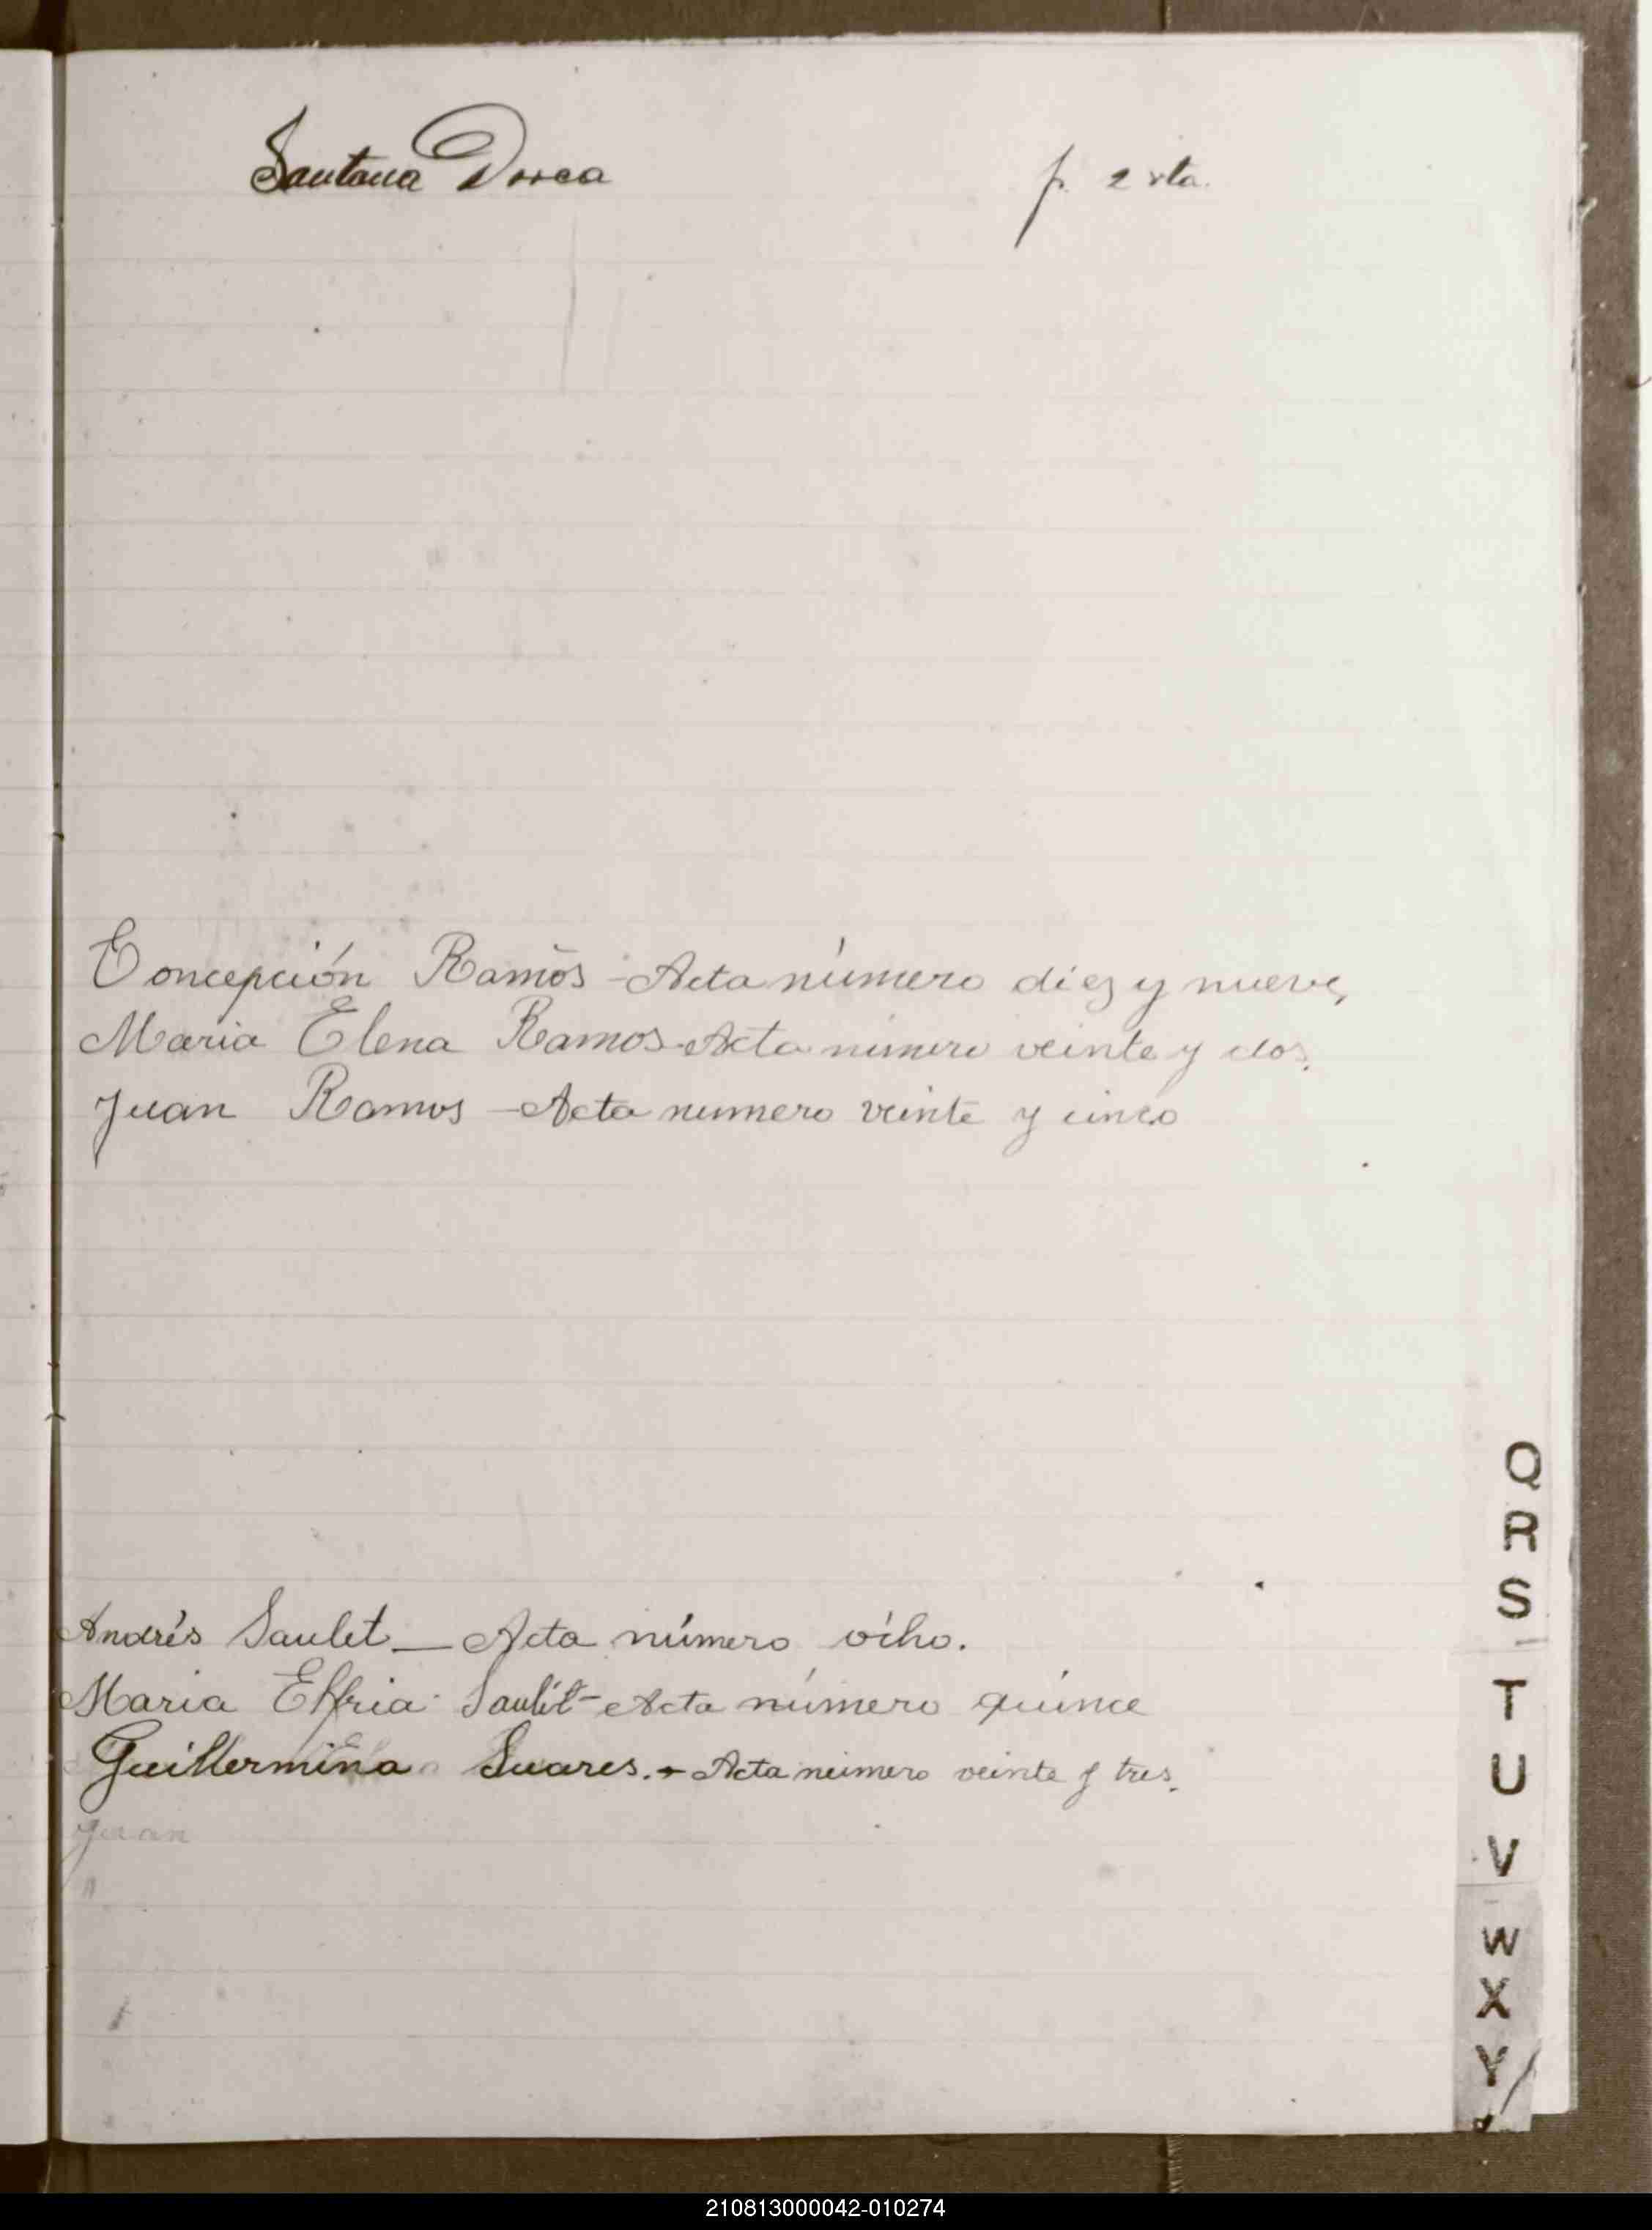 Santana Dorca p. 2 vta.
Concepción Ramos - Acta número diez y nueve,
Maria Elena Ramos - Acta numero veinte y dos.
Juan Ramos - Acta numero veinte y cinco
Andrés Saulet - Acta número ocho.
Maria Saulét - Acta número quince
Guillermina Suares. - Acta numero veinte y tres.
Juan
Q
R
S
T
U
V
W
X
Y
210813000042-010274